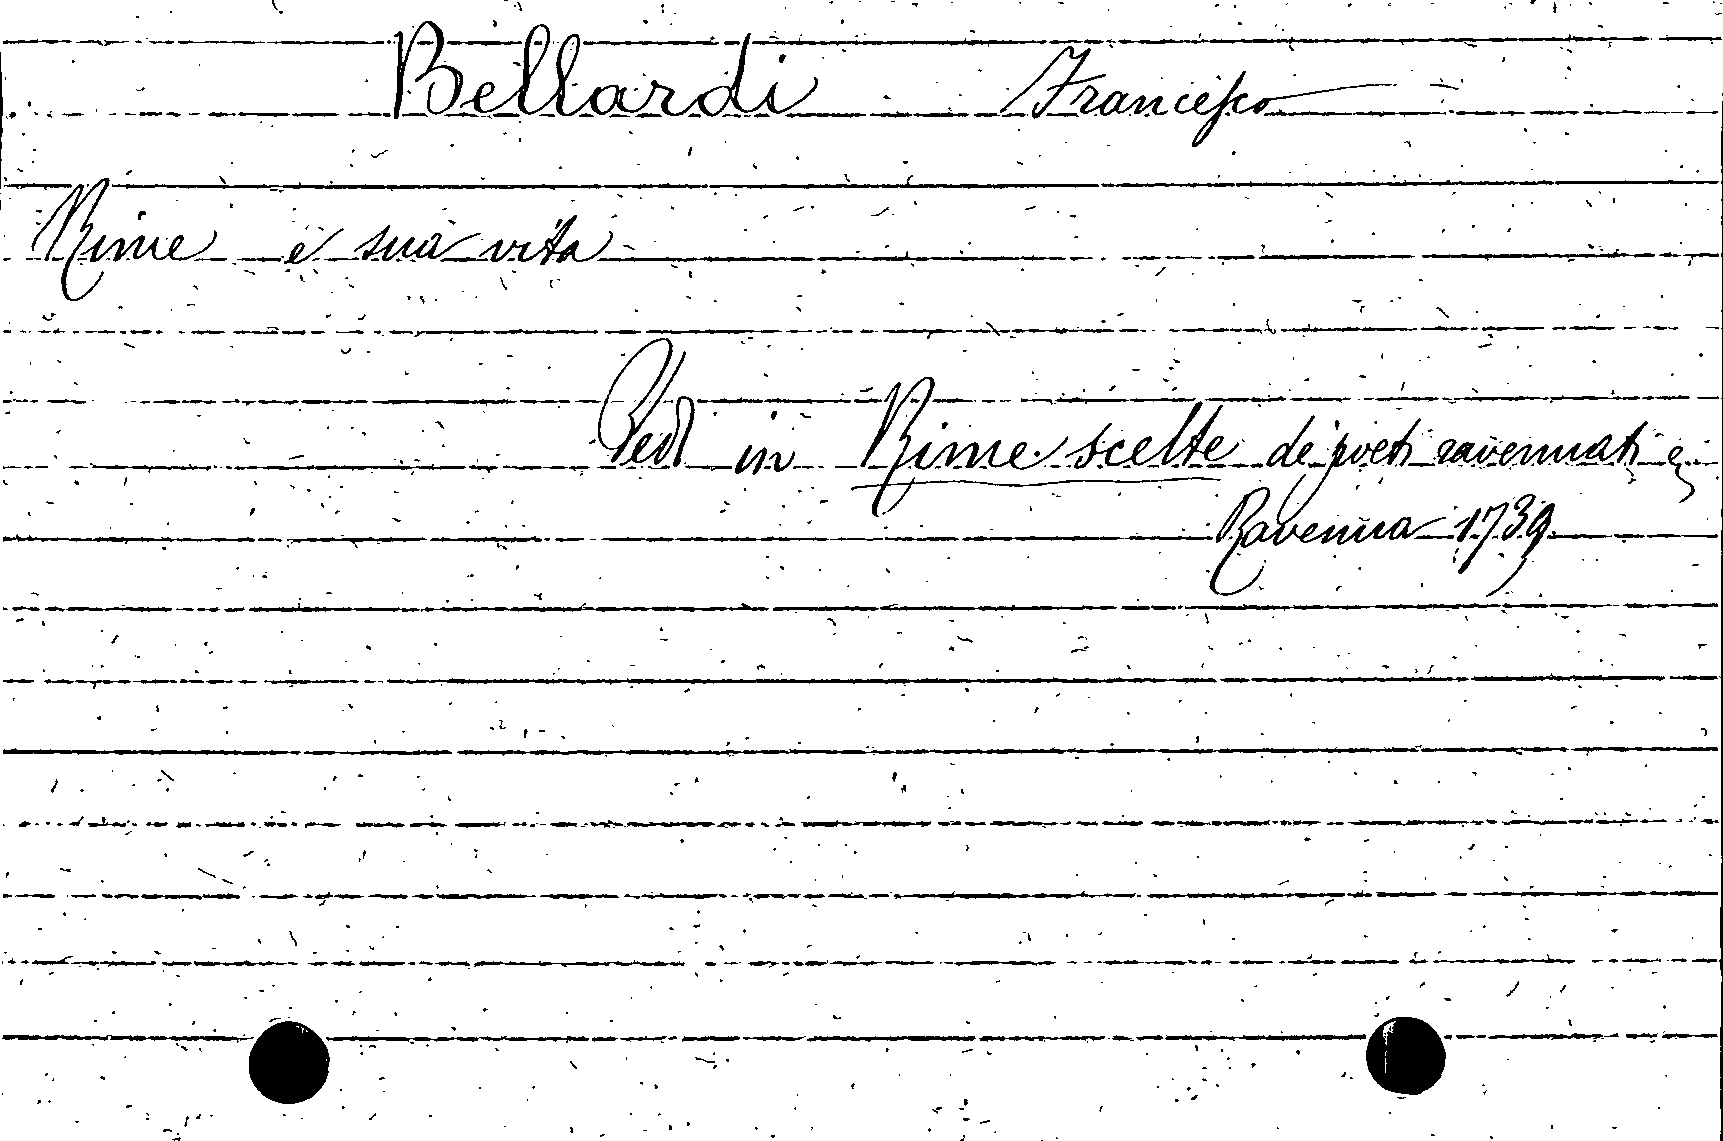 Bellardi Francesco
Rime e sua vita
Vedi in Rime scelte de' poeti ravennati &
Ravenna 1739